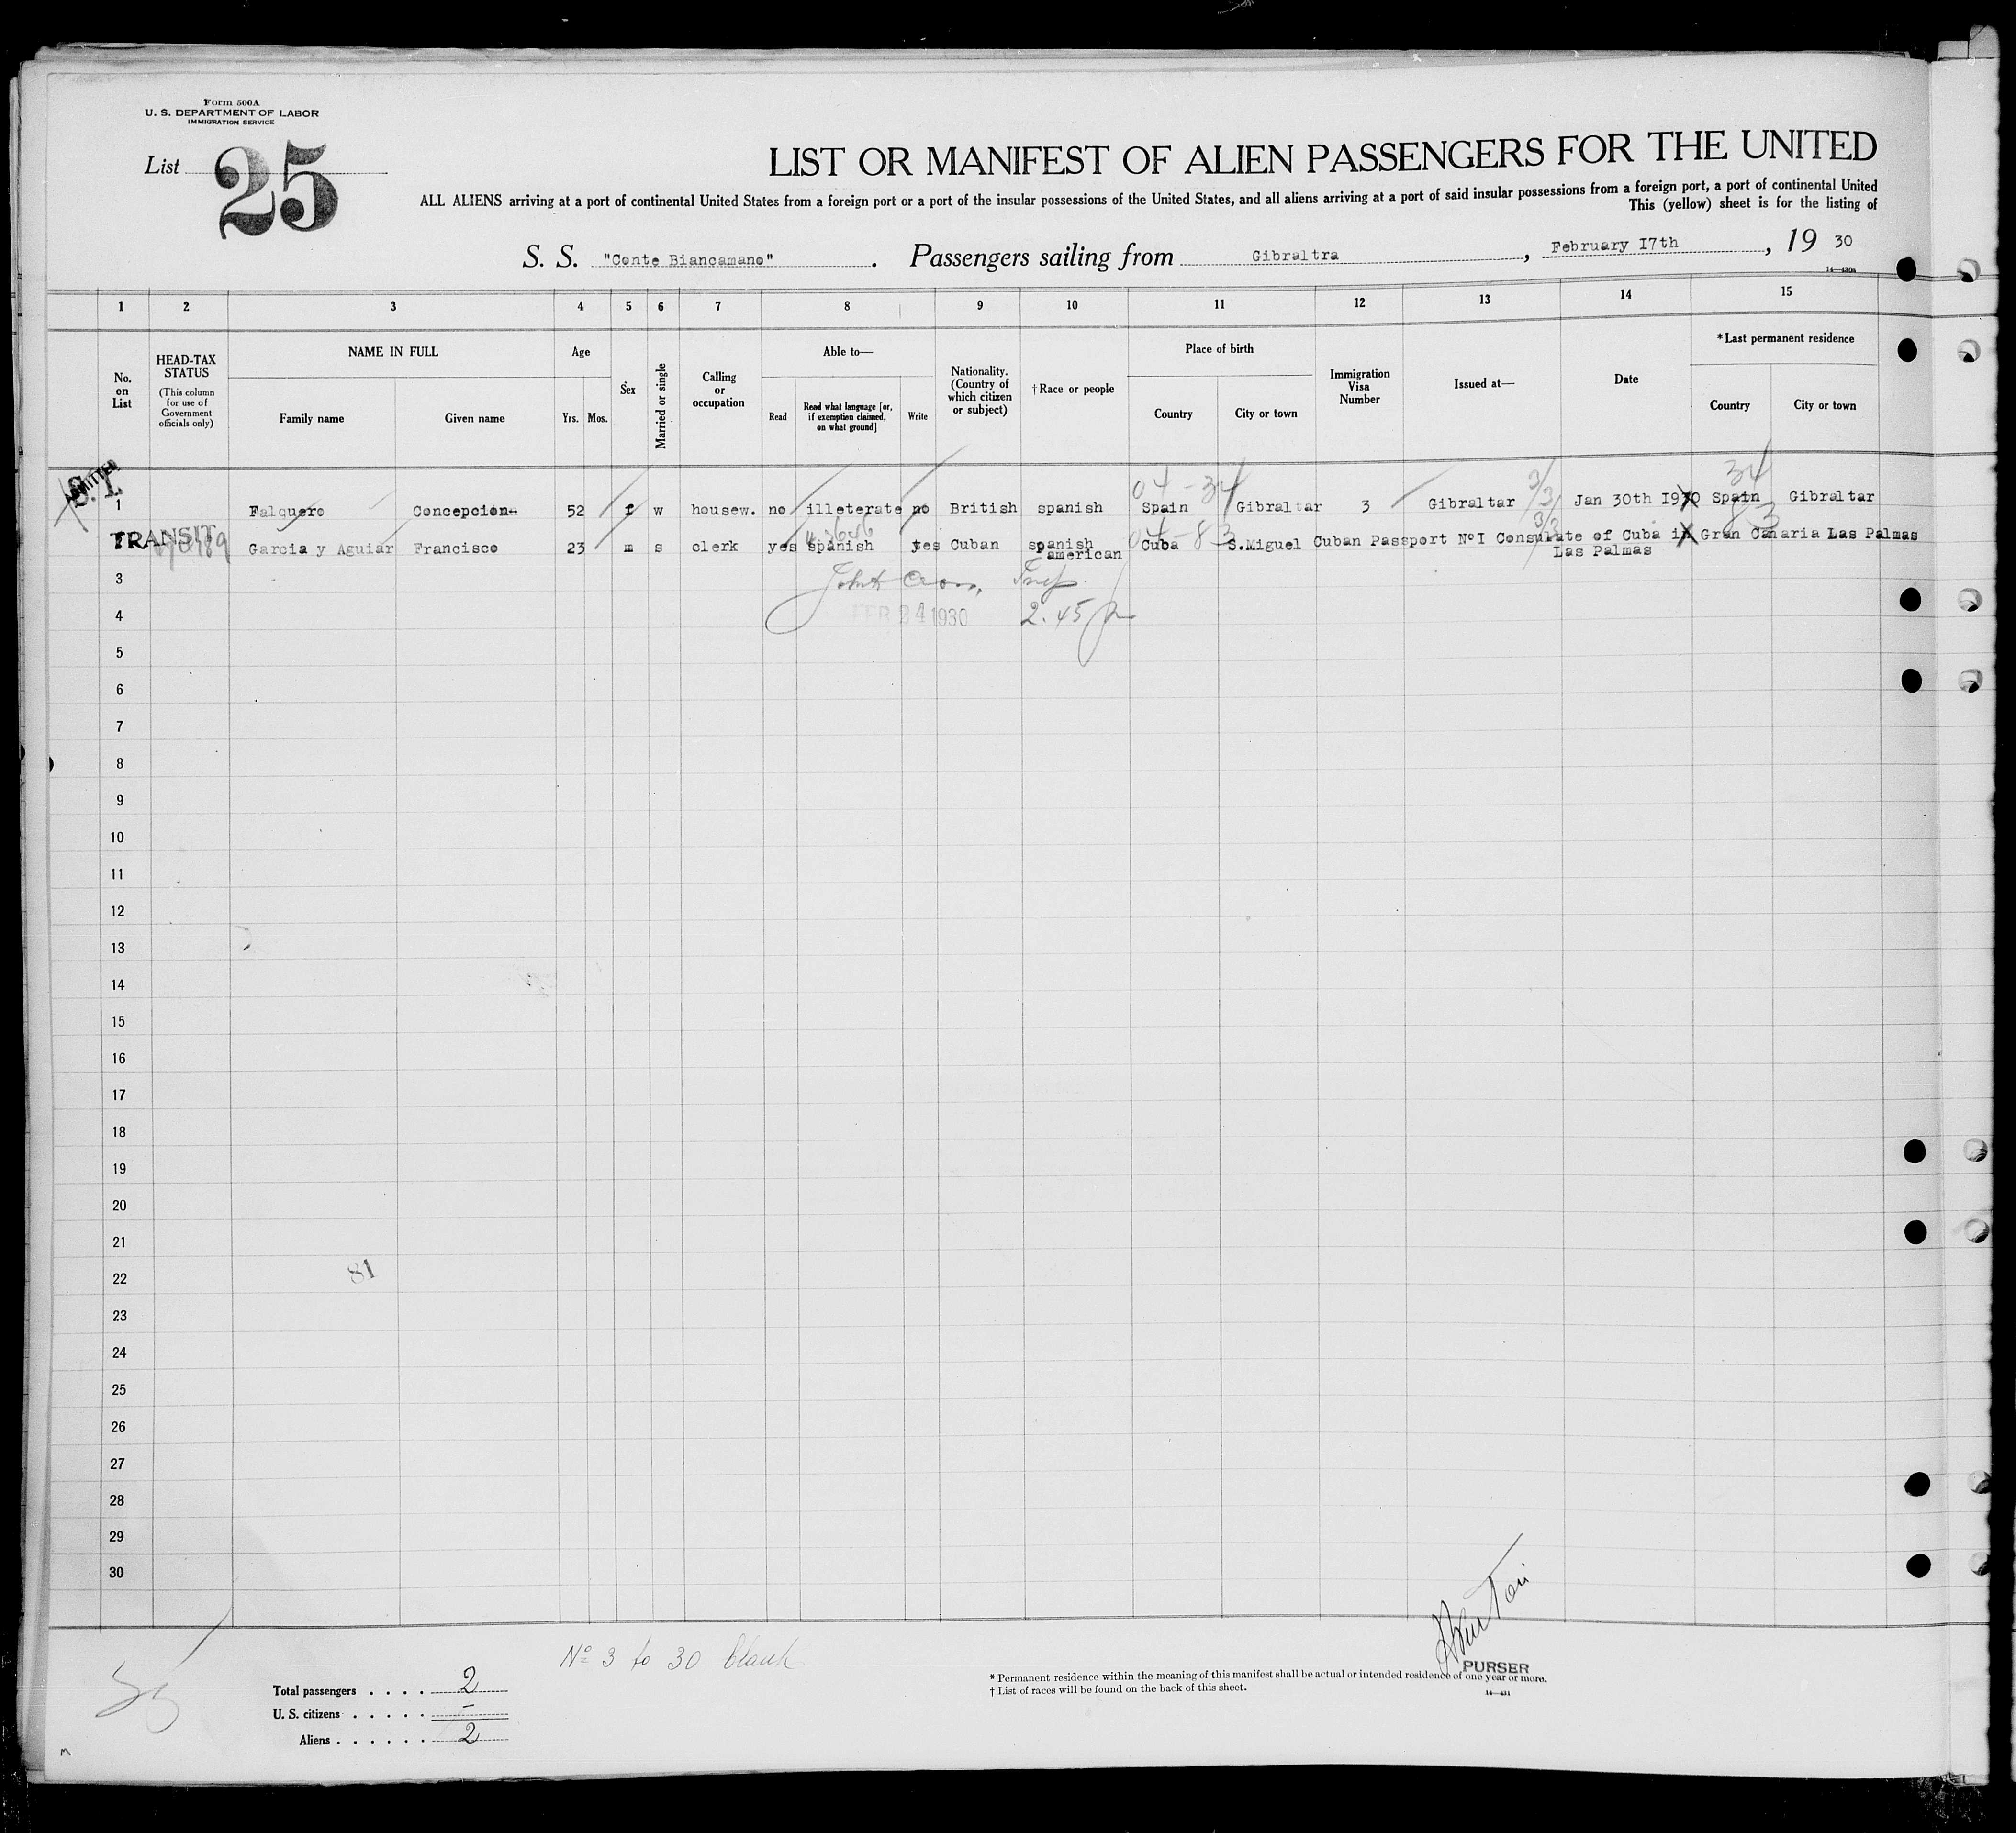 Form 500A
U. S. DEPARTMENT OF LABOR
IMMIGRATION SERVICE
List 25
LIST OR MANIFEST OF ALIEN PASSENGERS FOR THE UNITED
ALL ALIENS arriving at a port of continental United States from a foreign port or a port of the insular possessions of the United States, and all aliens arriving at a port of said insular possessions from a foreign port, a port of continental United
This (yellow) sheet is for the listing of
S. S. "Conte Biancamano". Passengers sailing from Gibraltra, February I7th, 19 30
14—430a
1 2 3 4 5 6 7 8 9 10 11 12 13 14 15
No. on List
HEAD-TAX STATUS
(This column for use of Government officials only)
NAME IN FULL
Family name
Given name
Age
Yrs. Mos.
Sex
Married or single
Calling or occupation
Able to—
Read
Read what language [or, if exemption claimed, on what ground]
Write
Nationality. (Country of which citizen or subject)
† Race or people
Place of birth
Country
City or town
Immigration Visa Number
Issued at—
Date
* Last permanent residence
Country
City or town
04-34
34
ADMITTED
S. I.
1 Falquero Concepcion 52 f w housew. no illeterate no British spanish Spain Gibraltar 3 Gibraltar Jan 30th I930 Spain Gibraltar
3/31
3/3
04-83
83
TRANSIT
2 Garcia y Aguiar Francisco 23 m s clerk yes spanish yes Cuban spanish american Cuba S.Miguel Cuban Passport NoI Consulate of Cuba in Las Palmas Gran Canaria Las Palmas
3
4 FEB 24 1930 2.45 p
5
6
7
8
9
10
11
12
13
14
15
16
17
18
19
20
21
22 81
23
24
25
26
27
28
29
30
No 3 to 30 blank
Total passengers . . . . 2
U. S. citizens . . . . . –
Aliens . . . . . . 2
* Permanent residence within the meaning of this manifest shall be actual or intended residence of one year or more.
† List of races will be found on the back of this sheet.
PURSER
14—431